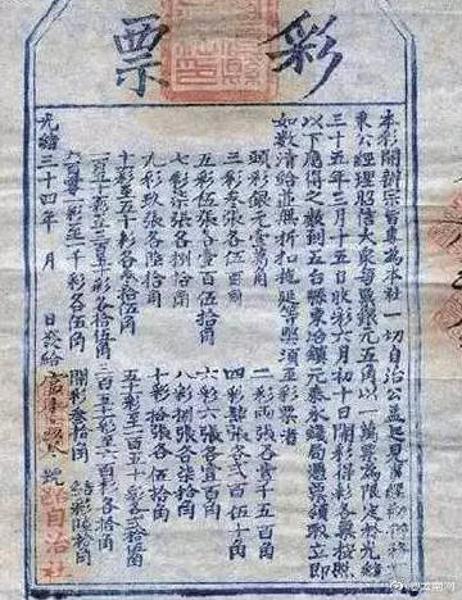 彩票
本彩開辦宗旨專為本社一切自治公益起見
東公經理昭信大眾每票銀元五角以一萬票為限定於光緒
三十五年三月十五日收彩六月初十日開彩得彩各票按照
以下應得之數到五台縣東冶鎮元泰永錢局憑票領取立即
如數清給並無折扣拖延等弊須至彩票者
頭彩銀元壹萬角 二彩兩張各壹千五百角
三彩叁張各伍百角 四彩肆張各弍百伍十角
五彩伍張各壹百伍拾角 六彩六張各壹百角
七彩柒張各捌拾角 八彩捌張各柒拾角
九彩玖張各陸拾角 十彩拾張各伍拾角
十彩至五十彩各叁拾伍角 五十彩至一百五十彩各弍拾伍角
一百五十彩至三百五十彩各拾伍角 三百五十彩至六百彩各拾角
六百零一彩至一千彩各伍角 開彩叁拾角 結彩陸拾角
光緒三十四年 月 日發給 號 自治社